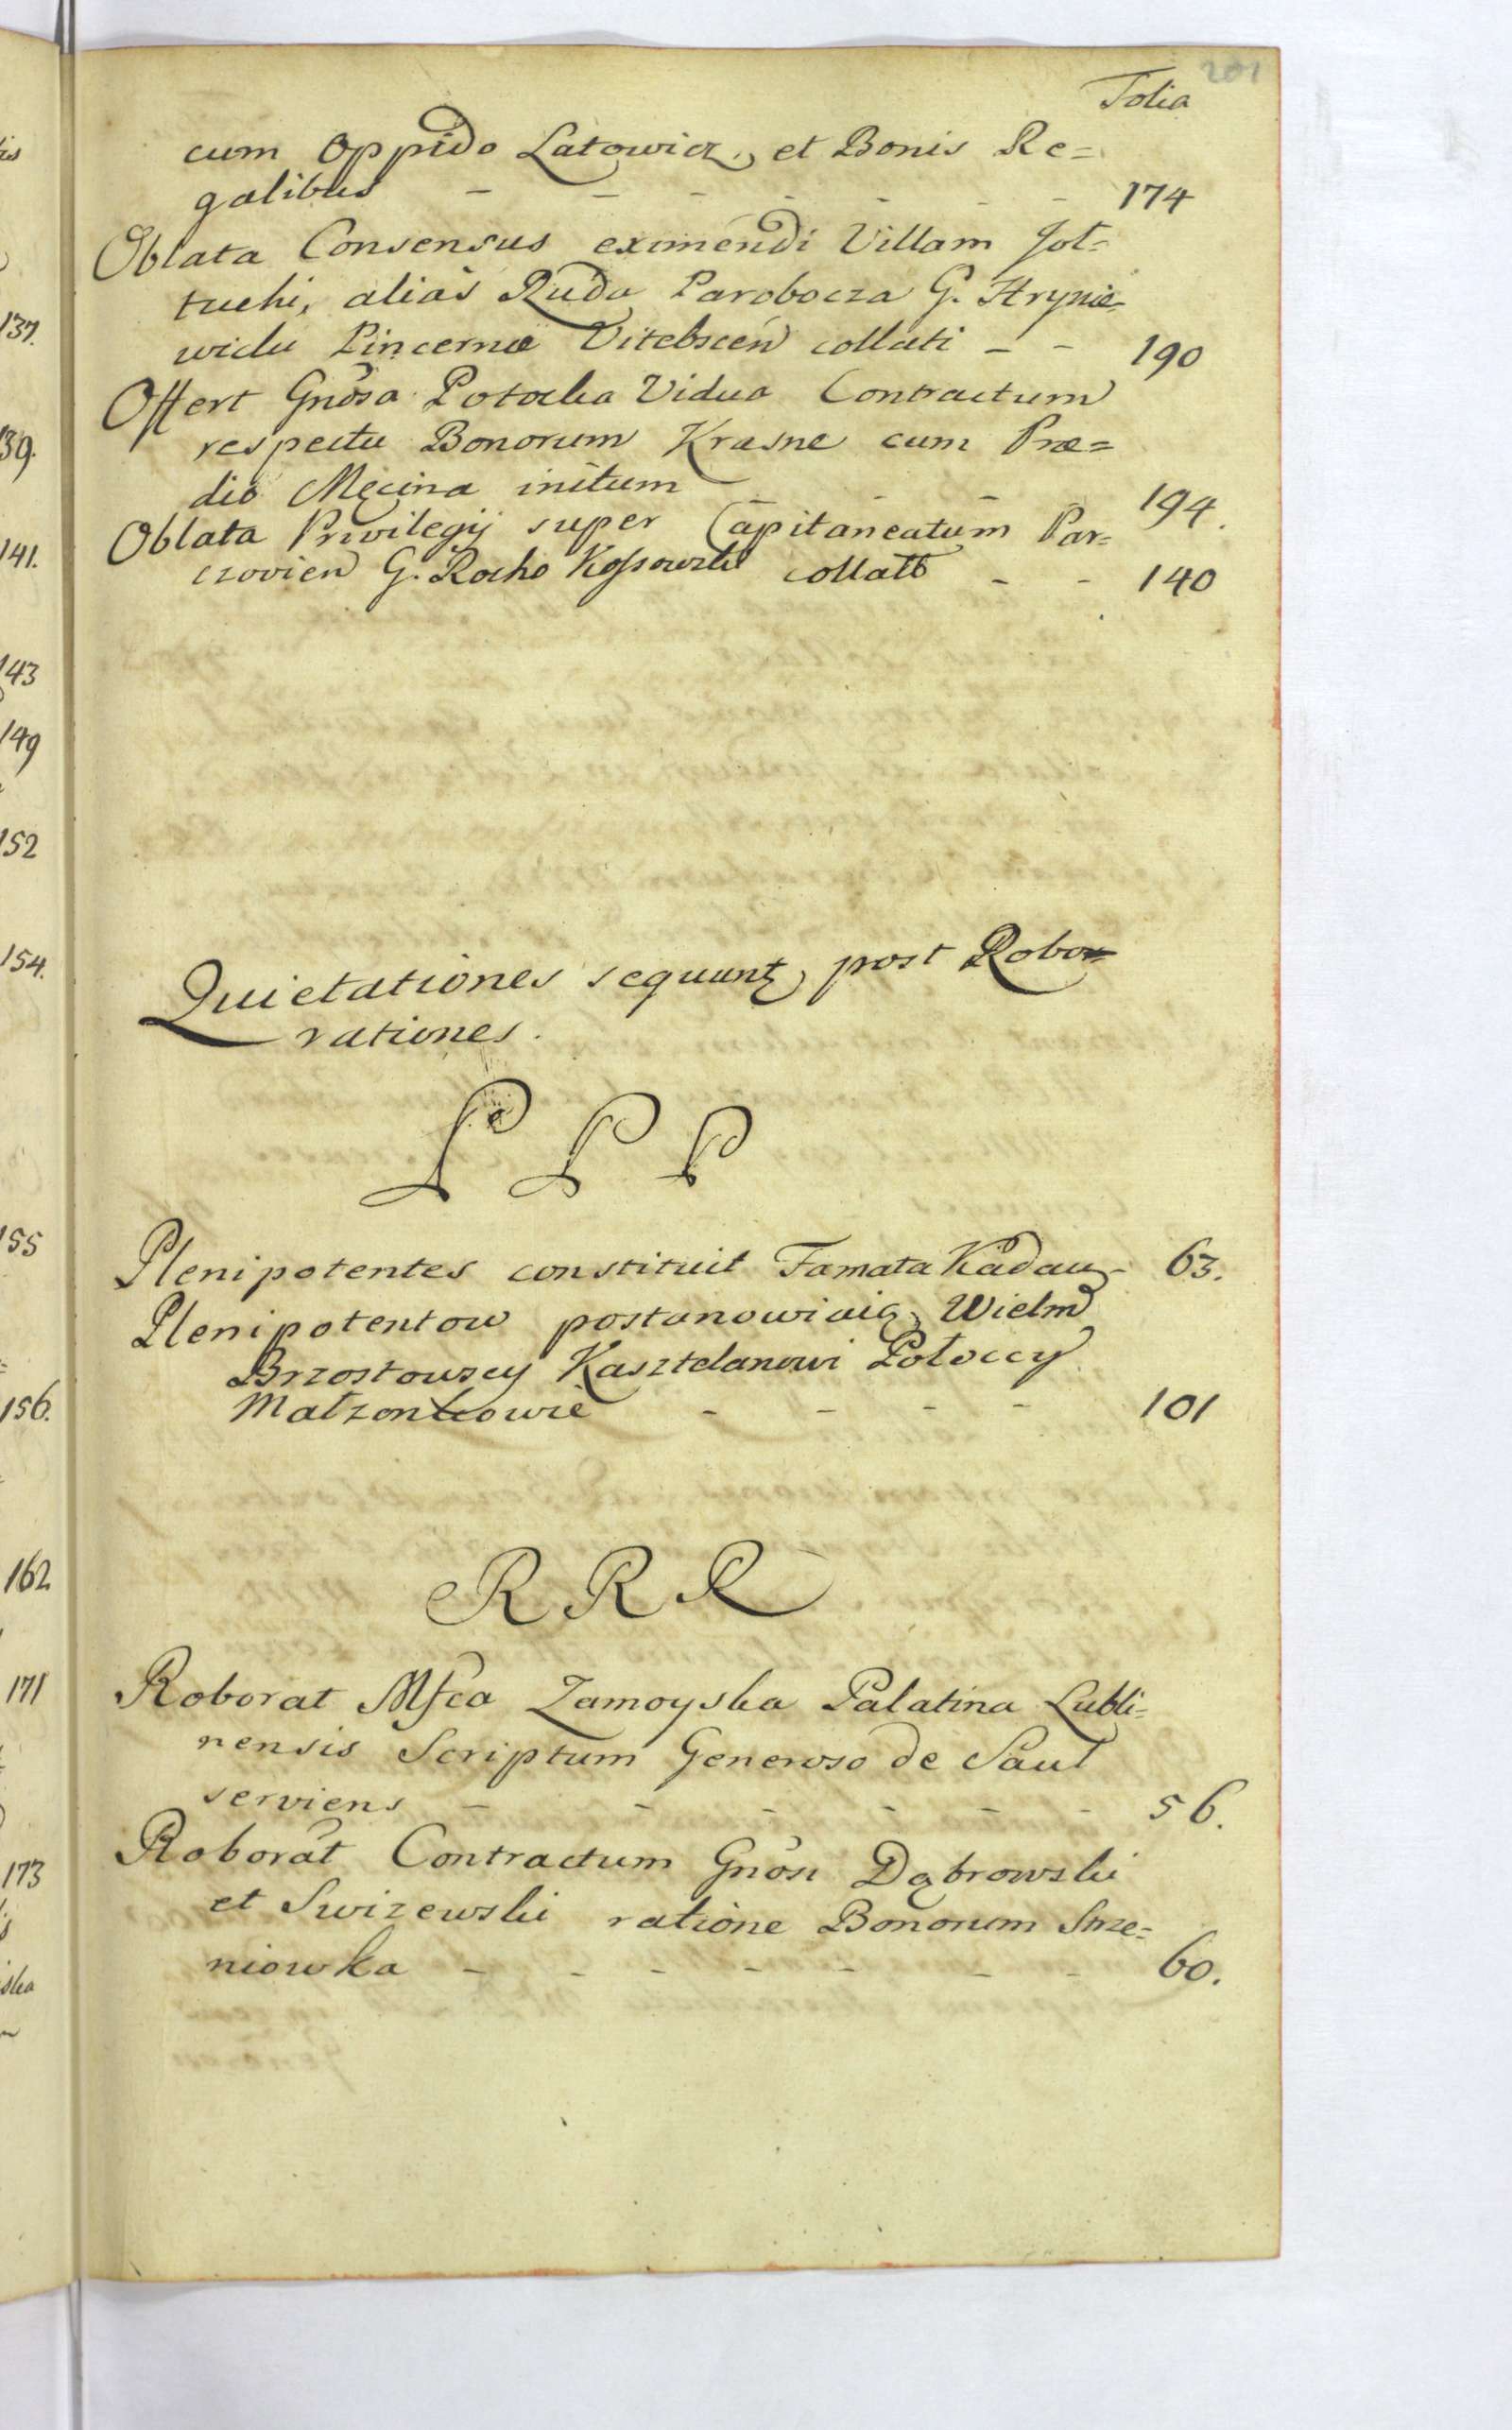 201
Folia
cum Oppido Latowicz, et Bonis Re=
galibus - - - - - - 174
Oblata Consensus eximendi Villam Joł=
tuchi, alias Ruda Parobocza G. Hrynie=
wicku Pincernæ Vitebscen collati - - 190
Offert Gnosa Potocka Vidua Contractum
respectu Bonorum Krasne cum Præ=
dio Męcina initum - - - - 194.
Oblata Privilegij super Capitaneatum Par=
czovien G. Rocho Kossowski collati - - 140
Quietationes sequunt, post Robo=
rationes.
P P P
Plenipotentes constituit Famata Kadau - 63.
Plenipotentow postanowiaią Wielm
Brzostowscy Kasztelanowi Połoccy
Małzonkowie - - - - 101
R R R
Roborat Mfca Zamoyska Palatina Lubli=
nensis Scriptum Generoso de Saul
serviens - - - - - - 56.
Roborat Contractum Gnosi Dąbrowski
et Swizewski ratione Bonorum Strze=
niowka - - - - - - - 60.
137.
139.
141.
143
149
152
154.
155
156.
162
171
173